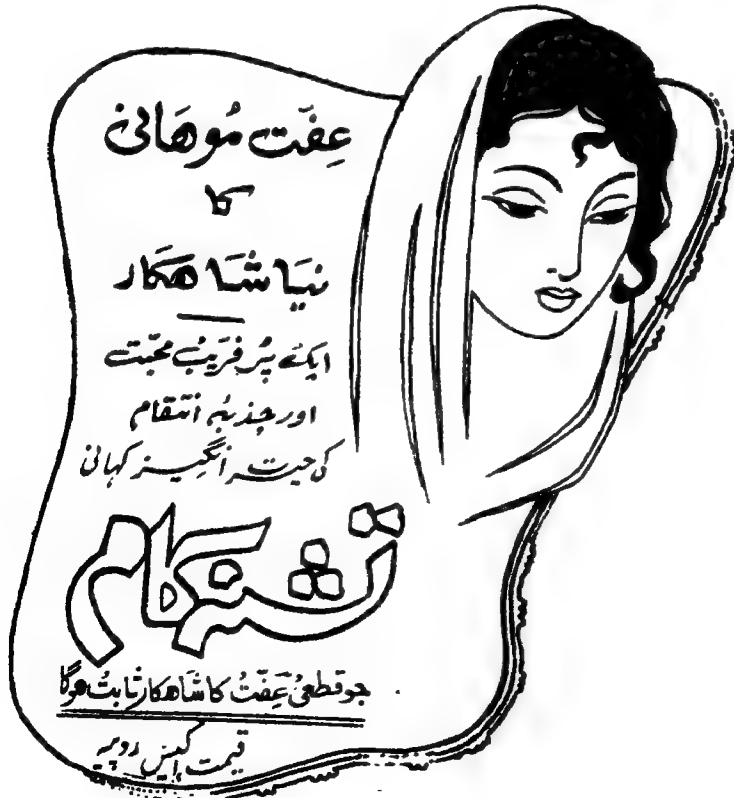 عِفّت مُوهَانی
کا
نیَا شَاهکار
ایک پُر فریب محبّت
اور جذبۂ انتقام
کی حیرت انگیز کہانی
تشنہ کام
جو قطعیُ عِفّتُ کا شَاهکار ثابتُ هوگا
قیمت اکیس روپیہ